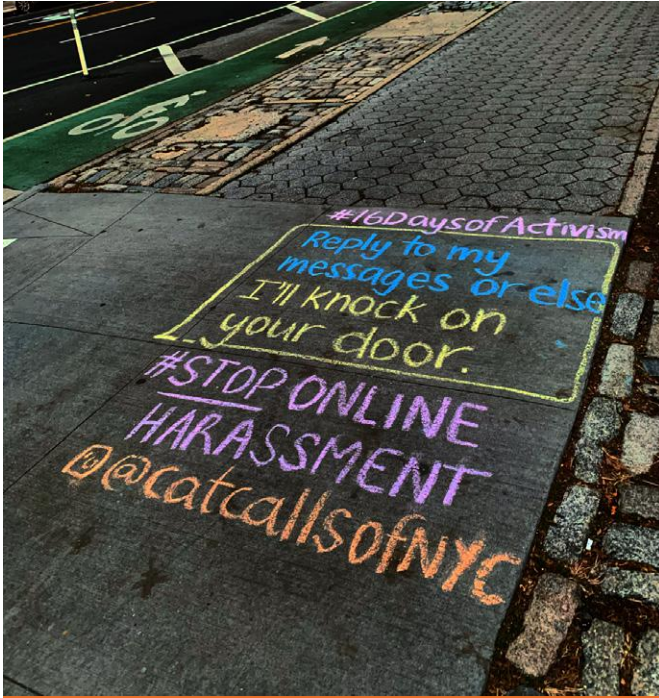 #16DaysofActivism
Reply to my
messages or else
I'll knock on
your door.
#STOP ONLINE
HARASSMENT
@catcallsofNYC